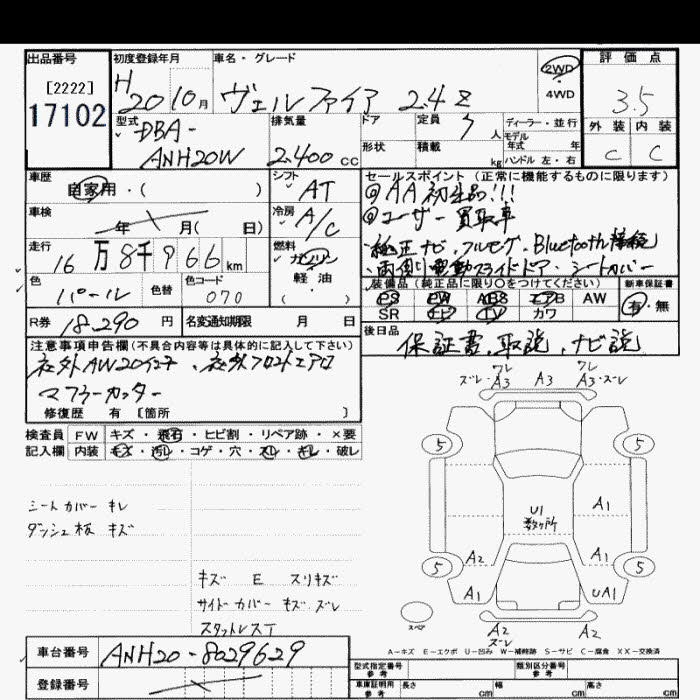 出品番号 初度登録年月 車名・グレード 2WD 評価点
[2222] H 4WD
17102 20 10月 ヴェルファイア 2.4Z 3.5
型式 排気量 ドア 定員 7人 ディーラー・並行 外装 内装
DBA- 形状 積載 kg モデル年式 年 C C
ANH20W 2.400cc ハンドル 左・右
車歴 シフト セールスポイント (正常に機能するものに限ります)
自家用・( ) AT @AA初出品!!!
車検 冷房 @ユーザー買取車
年 月( 日) A/C 純正ナビ.フルセグ.Bluetooth接続
走行 燃料 両側電動スライドドア.シートカバー
16万8千966km ガソリン
色 色替 色コード 軽油 装備品(純正品に限り○をつけてください) 新車保証書
パール 070 ( ) PS PW ABS エアB AW 有・無
R券 18.290円 名変通知期限 月 日 SR ナビ TV カワ
注意事項申告欄(不具合内容等は具体的に記入して下さい) 後日品
社外AW20インチ、社外フロントエアロ 保証書.取説.ナビ説
マフラーカッター
修復歴 有 [箇所 ]
検査員 FW キズ・飛石・ヒビ割・リペア跡・×要
記入欄 内装 キズ・汚レ・コゲ・穴・スレ・キレ・破レ
ズレ・A3 ワレ A3 ワレ A3・ズレ
5 5
シートカバー キレ
ダッシュ板 キズ
U1 数ヶ所 A1
A2 A1
5 5
A1 UA1
キズ E スリキズ
サイドカバー キズ ズレ
スタットレスT
スペア A2 ズレ A2
A-キズ E-エクボ U-凹み W-補修跡 S-サビ C-腐食 XX-交換済
車台番号 ANH20-8029629
型式指定番号 参考 類別区分番号 参考
登録番号
車庫証明用 参考 長さ cm 幅 cm 高さ cm